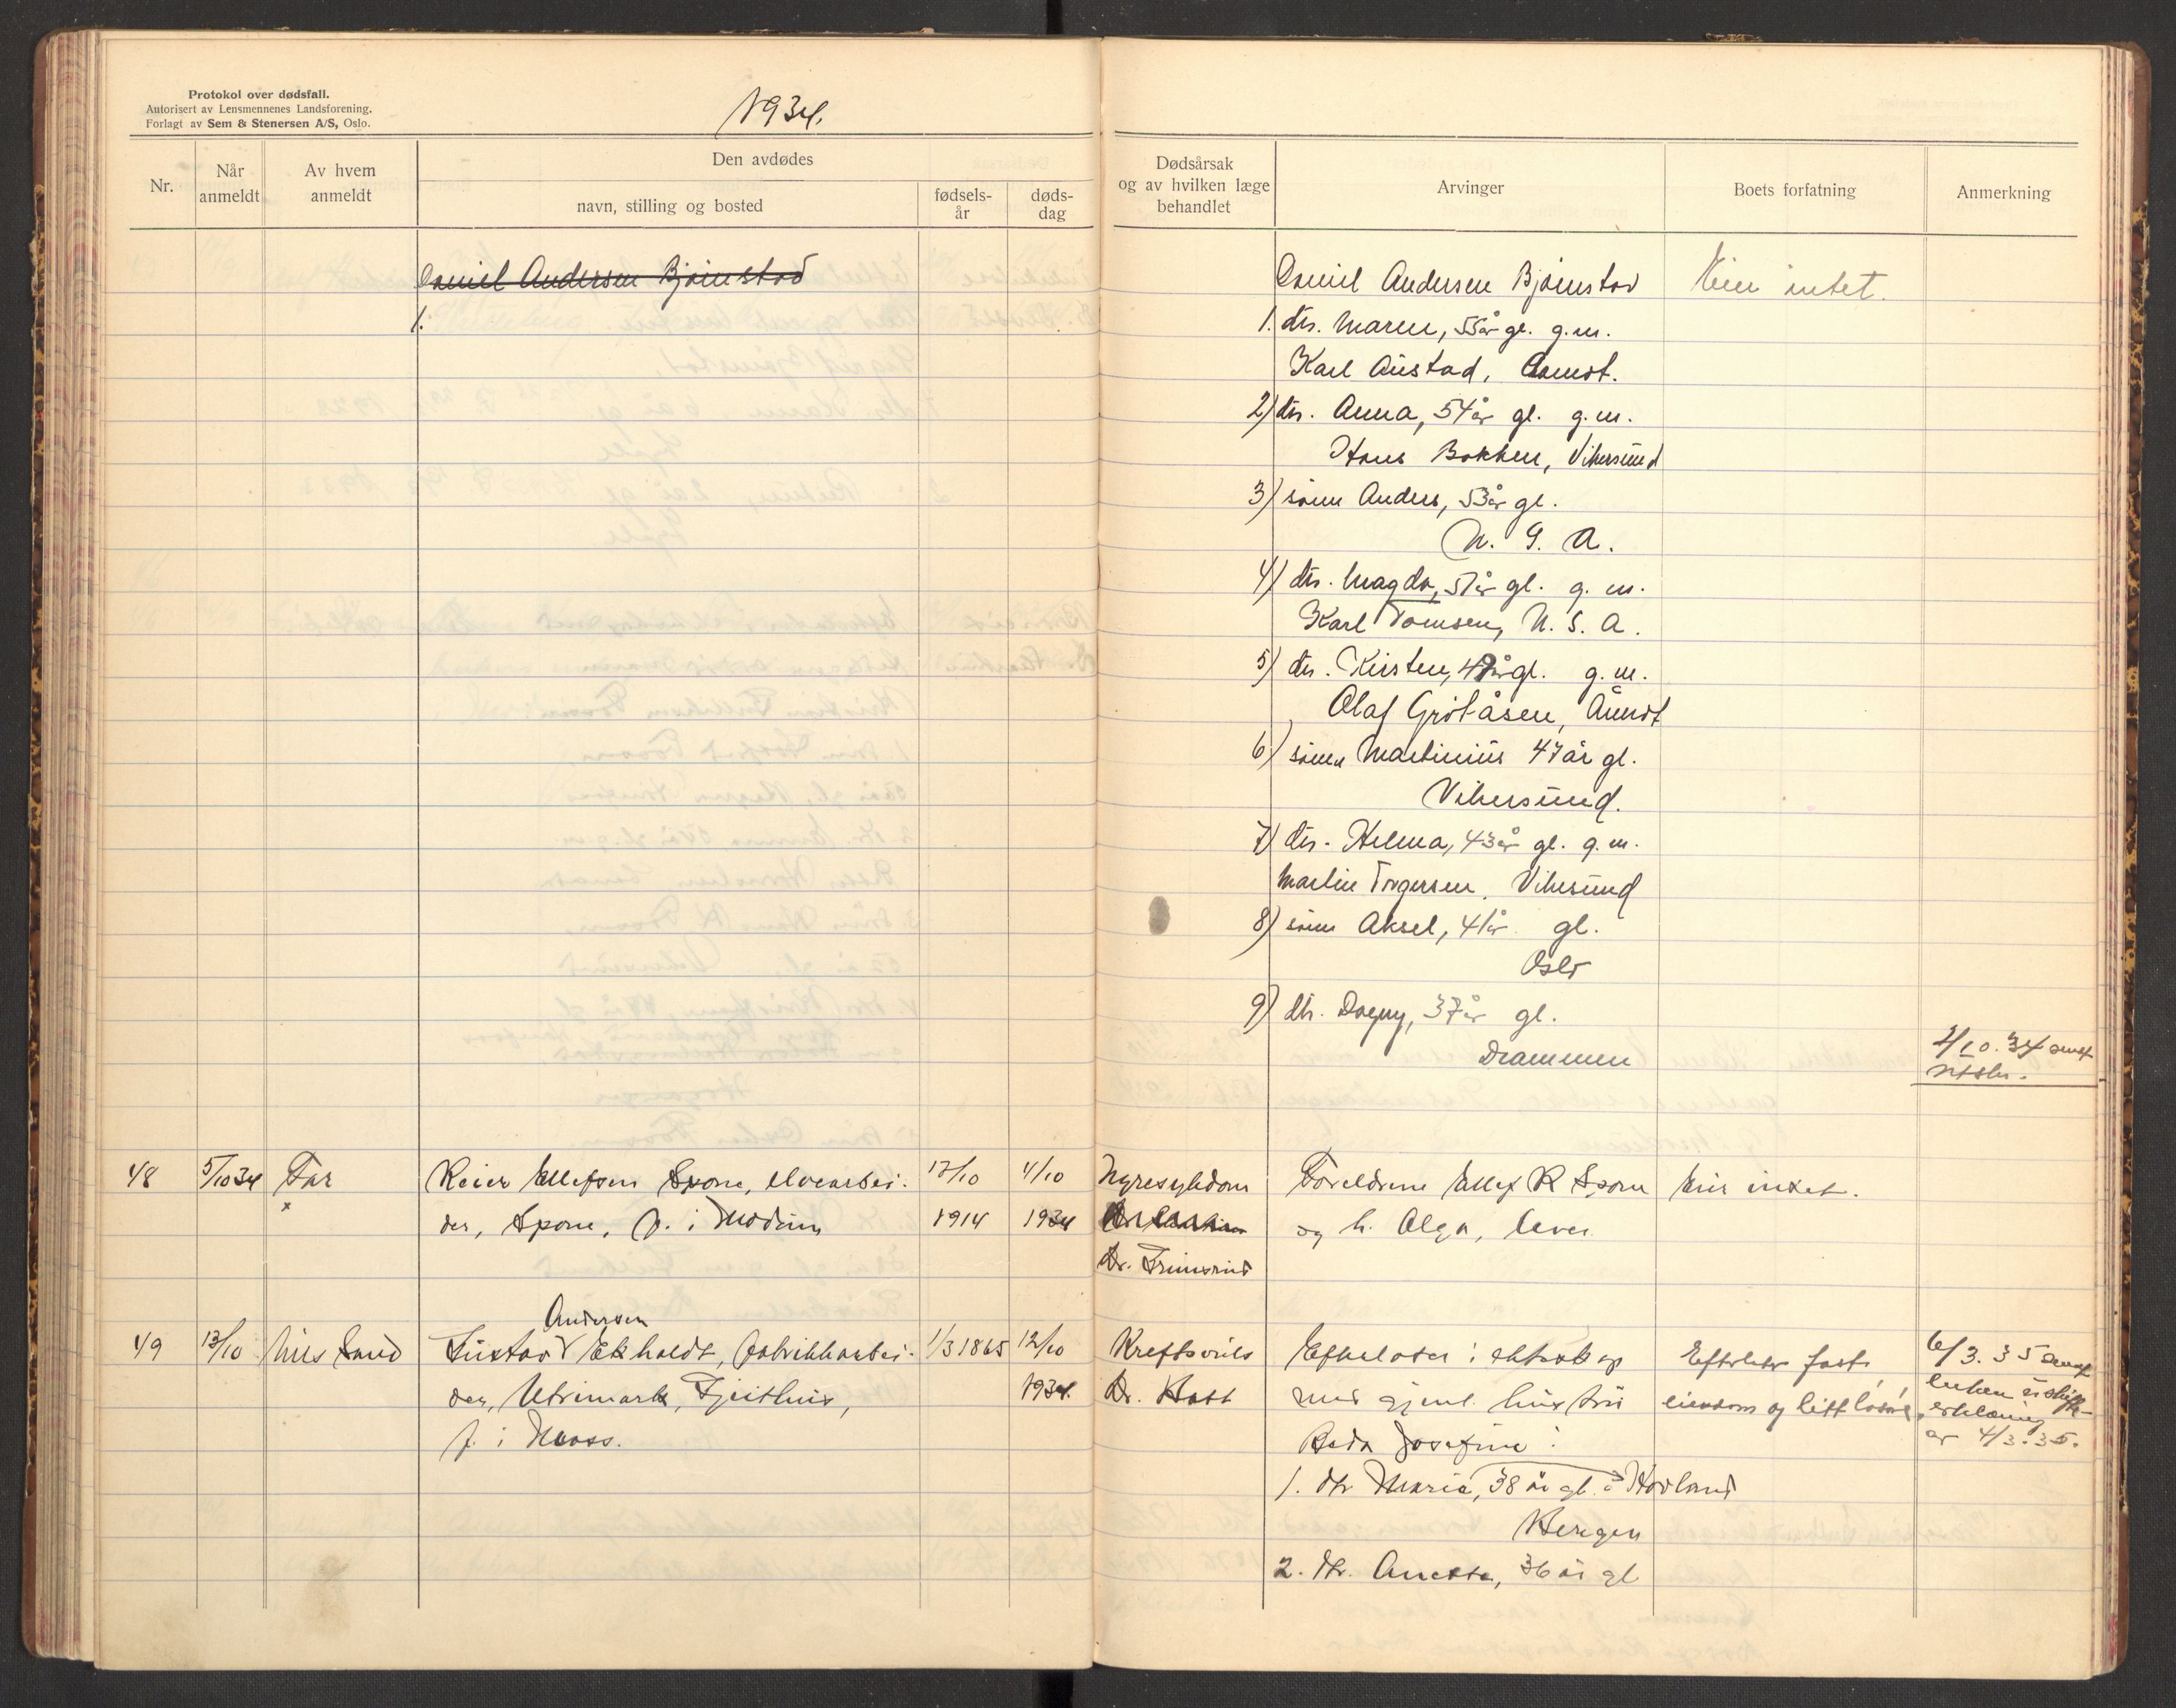 Protokol over dødsfall.
Autorisert av Lensmennenes Landsforening.
Forlagt av Sem & Stenersen A/S, Oslo.
1934.
Nr.
Når anmeldt
Av hvem anmeldt
Den avdødes
navn, stilling og bosted
fødsels-år
døds-dag
Dødsårsak og av hvilken læge behandlet
Arvinger
Boets forfatning
Anmerkning
Daniel Andersen Bjørnstad
1.
Daniel Andersen Bjørnstad
Eier intet.
1. dtr. Maren, 55 år gl. g.m.
Karl Austad, Åmot.
2) dtr. Anna, 54 år gl. g.m.
Hans Bakken, Vikersund
3) sønn Anders, 53 år gl.
U. S. A.
4) dtr. Magda, 51 år gl. g.m.
Karl Tomsen, U. S. A.
5) dtr. Kirsten, 49 år gl. g.m.
Olaf Gråtåsen, Åmot
6) sønn Martinius 47 år gl.
Vikersund.
7) dtr. Helma, 43 år gl. g.m.
Martin Torgersen, Vikersund
8) sønn Aksel, 41 år gl.
Oslo
9) dtr. Dagny, 37 år gl.
Drammen
2/10.34 sendt
skifter.
48
5/10 34
Far
x
Reier Ellefsen Spone, elvearbei-
der, Spone, f. i Modum
17/10
1914
4/10
1934
Nyresykdom
Dr. Frimsrud
Foreldrene Ellef R Spone
og h. Olga, lever.
Eier intet.
49
13/10
Nils Sand
Andersen
Gustav Ekholdt, fabrikkarbei-
der, Utrimark, Gjeithus,
f. i Moss.
1/3 1865
12/10
1934.
Kreftsvuls
Dr. Hatt
Efterlater i ekteskap
med gjenl. hustru
Beda Josefine:
1. dtr Maria, 38 år gl. i Hovland
Bergen
2. dtr. Anetta, 36 år gl
Efterlater fast
eiendom og litt løsøre
6/3.35 sendt
enken uskifte-
erklæring
av 4/3.35.